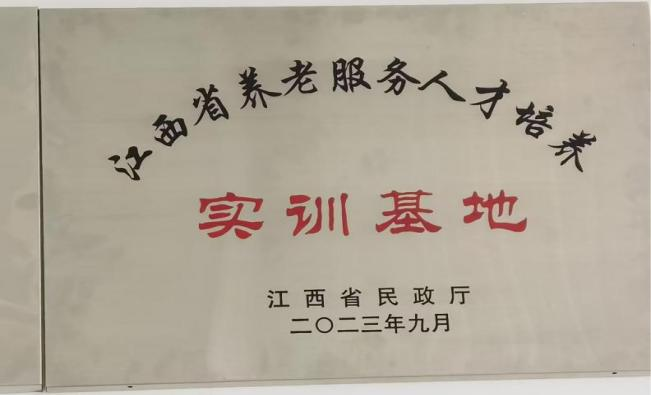 江西省养老服务人才培养
实训基地
江西省民政厅
二〇二三年九月